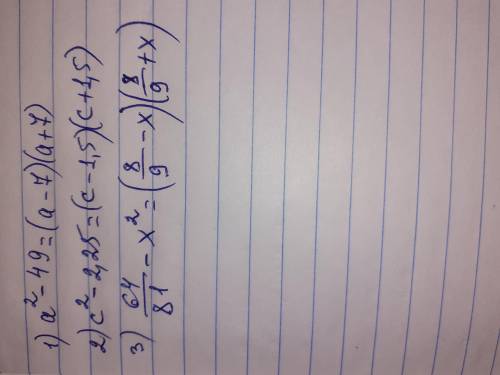 1) a² - 49 = (a - 7)(a + 7)
2) c² - 2,25 = (c - 1,5)(c + 1,5)
3) 64/81 - x² = (8/9 - x)(8/9 + x)